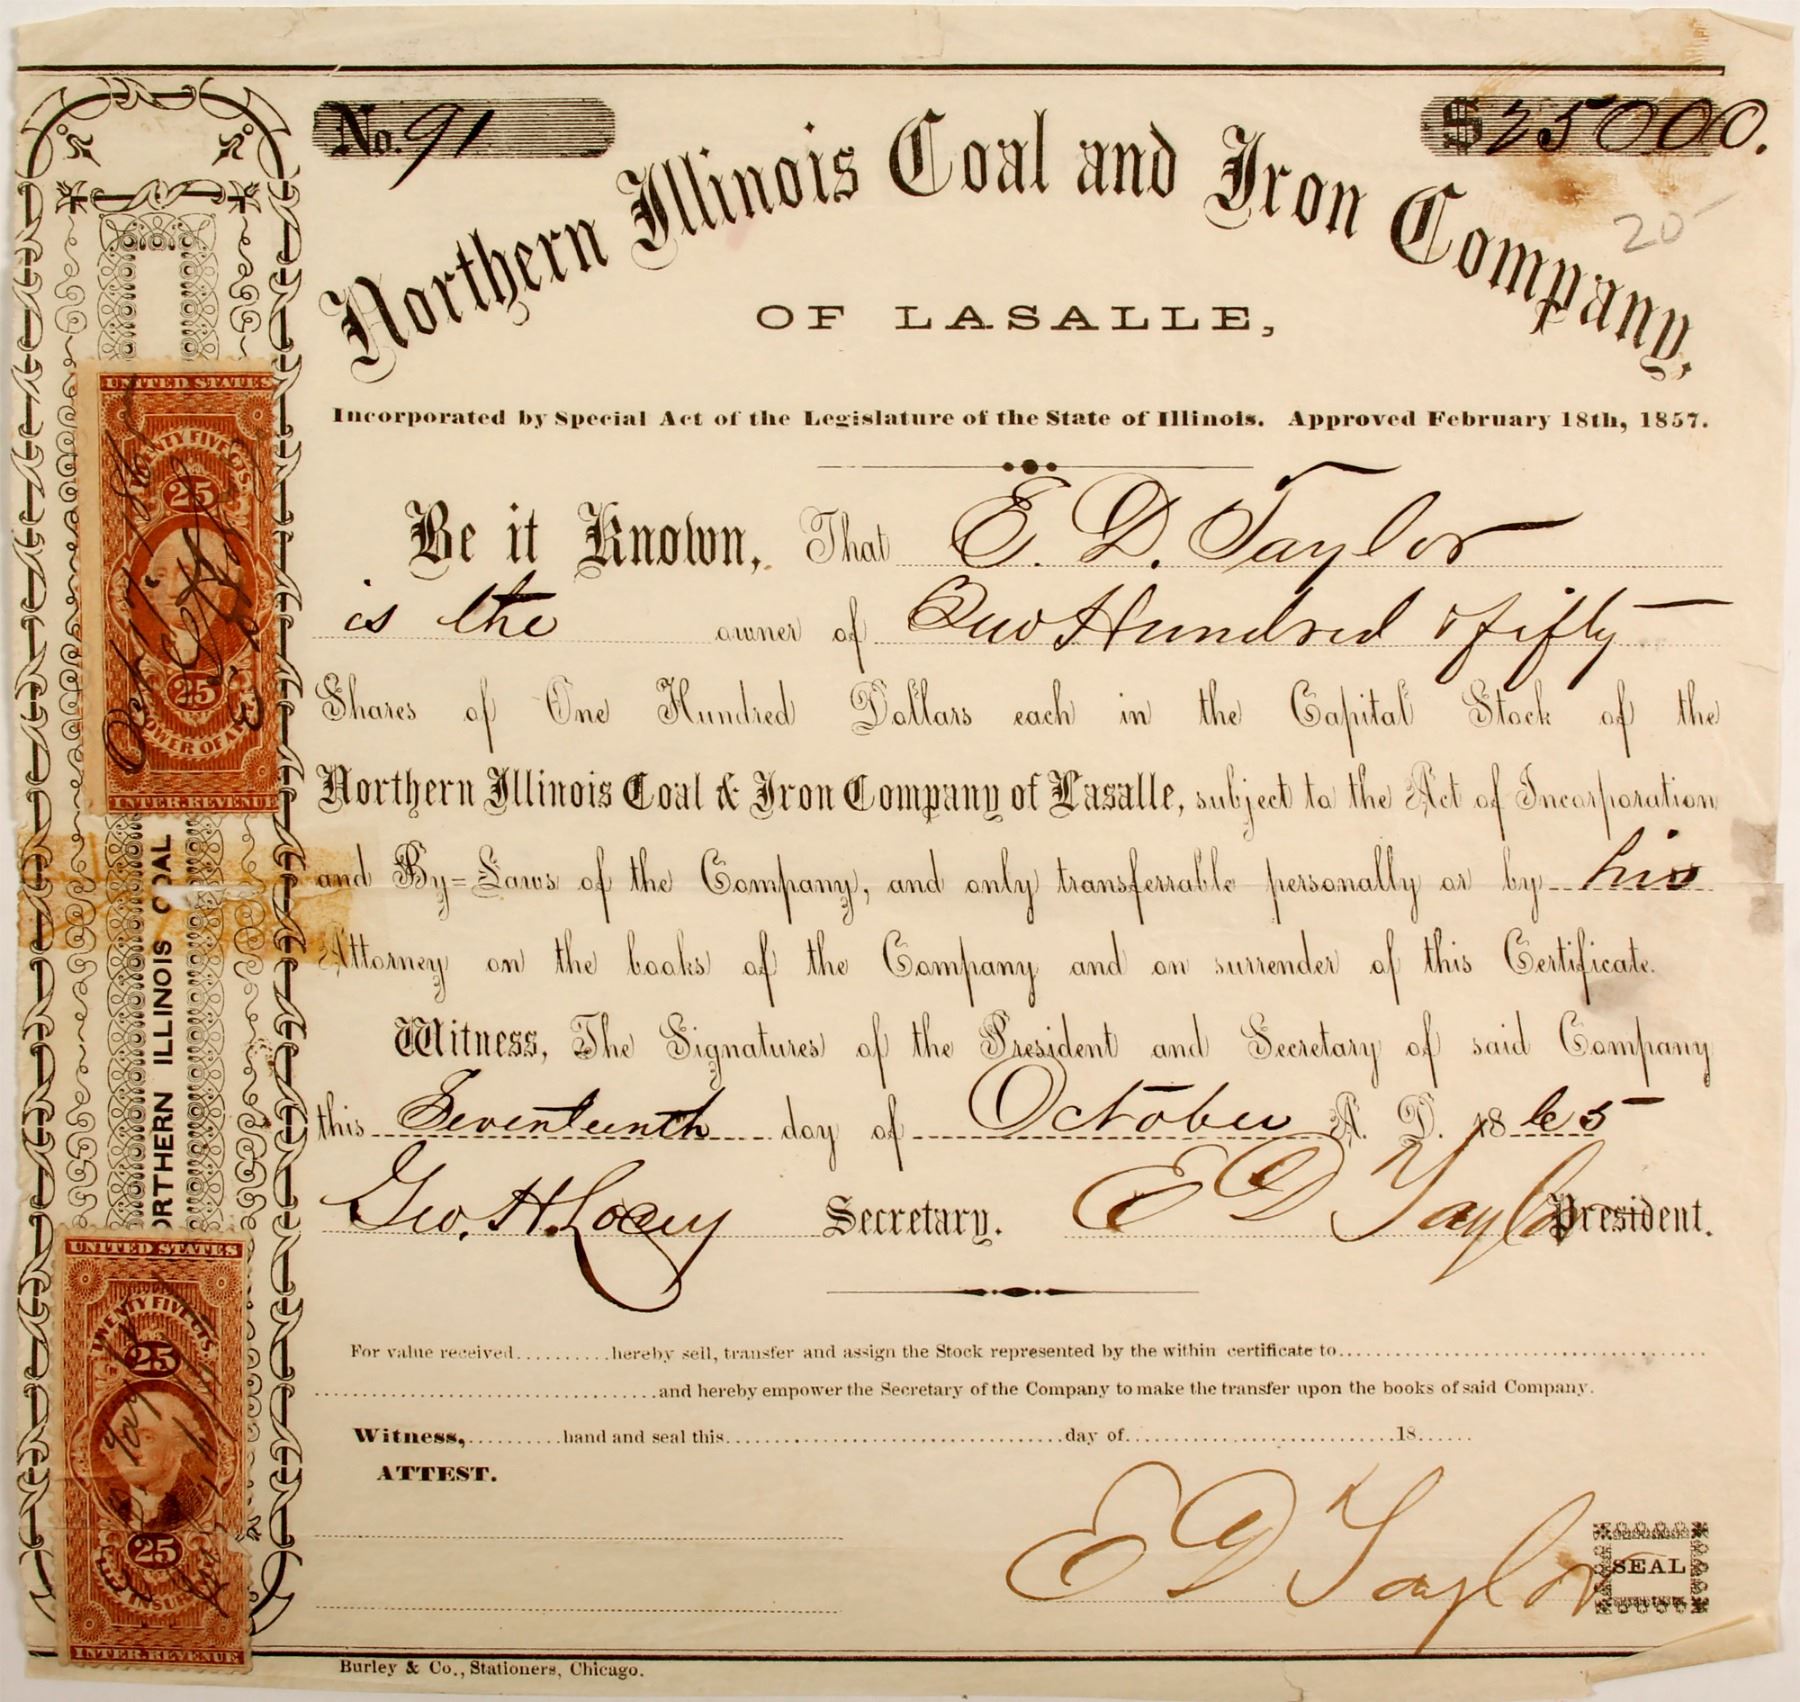 No. 91
$25000.
Northern Illinois Coal and Iron Company,
20
OF LASALLE,
Incorporated by Special Act of the Legislature of the State of Illinois. Approved February 18th, 1857.
Be it Known, That E. D. Taylor
is the owner of Two Hundred & fifty
Shares of One Hundred Dollars each in the Capital Stock of the
Northern Illinois Coal & Iron Company of Lasalle, subject to the Act of Incorporation
and By-Laws of the Company, and only transferrable personally or by his
Attorney on the books of the Company and on surrender of this Certificate.
Witness, The Signatures of the President and Secretary of said Company
this Seventeenth day of October A. D. 1865
Geo. H. Locey Secretary. E D Taylor President.
For value received..........hereby sell, transfer and assign the Stock represented by the within certificate to
and hereby empower the Secretary of the Company to make the transfer upon the books of said Company.
Witness,..........hand and seal this..........day of..........18......
ATTEST.
E D Taylor
SEAL
Burley & Co., Stationers, Chicago.
UNITED STATES
TWENTY FIVE CTS.
25
25
POWER OF AT
INTER. REVENUE
ORTHERN ILLINOIS COAL
UNITED STATES
TWENTY FIVE CTS.
25
25
INSUR
INTER. REVENUE